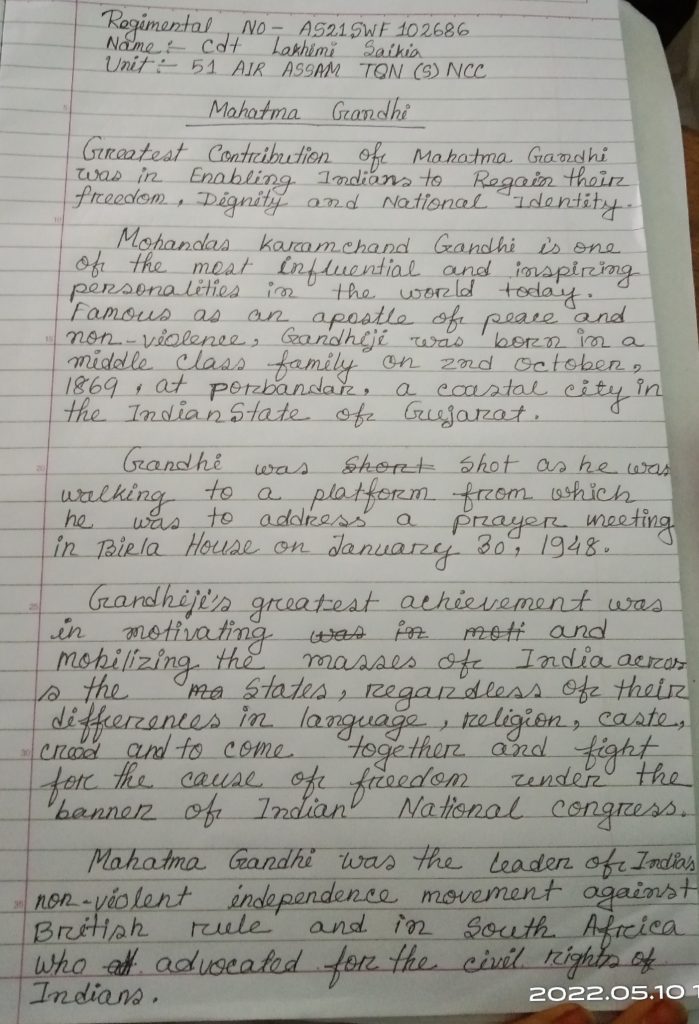 Regimental NO - AS21SWF102686
Name :- Cdt Lakhimi Saikia
Unit :- 51 AIR ASSAM TQN (S) NCC
Mahatma Gandhi
Greatest Contribution of Mahatma Gandhi
was in Enabling Indians to Regain their
freedom, Dignity and National Identity.
Mohandas Karamchand Gandhi is one
of the most influential and inspiring
personalities in the world today.
Famous as an apostle of peace and
non-violence, Gandhiji was born in a
middle class family on 2nd October,
1869, at porbandar, a coastal city in
the Indian State of Gujarat.
Gandhi was short shot as he was
walking to a platform from which
he was to address a prayer meeting
in Birla House on January 30, 1948.
Gandhiji's greatest achievement was
in motivating was in moti and
mobilizing the masses of India acros
s the ma States, regardless of their
differences in language, religion, caste,
creed and to come together and fight
for the cause of freedom under the
banner of Indian National congress.
Mahatma Gandhi was the leader of India's
non-violent independence movement against
British rule and in South Africa
who advocated for the civil rights of
Indians.
2022.05.10 1